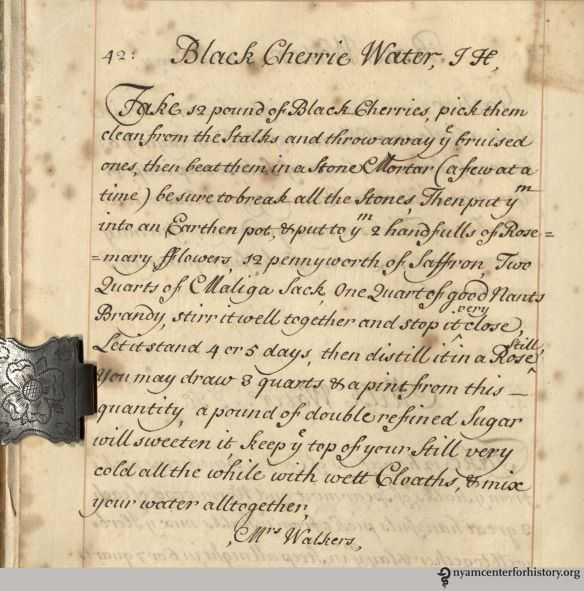 42: Black Cherrie Water, J H,
Take 12 pound of Black Cherries, pick them
clean from the Stalks and throw away yᵉ bruised
ones, then beat them in a Stone Mortar (a few at a
time) be sure to break all the Stones, Then put yᵐ
into an Earthen pot, & put to yᵐ 2 handfulls of Rose=
=mary fflowers, 12 pennyworth of Saffron Two
Quarts of Maliga Sack, One Quart of good Nants
Brandy, stirr it well together and stop it ^very close,
Let it stand 4 or 5 days, then distill it in a Rose ^Still
You may draw 3 quarts & a pint from this —
quantity, a pound of double refined Sugar
will sweeten it, keep yᵉ top of your Still very
cold all the while with wett Cloaths, & mix
your water alltogether,
, Mrs Walkers,
nyamcenterforhistory.org